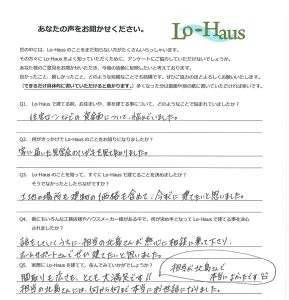 あなたの声をお聞かせください。
Lo-Haus
世の中には、Lo-Hausのことをまだ知らない方がたくさんいらっしゃいます。
その方々にLo-Hausをよく知っていただくために、アンケートにご協力していただけないでしょうか。
あなた様のご意見をお聞かせいただき、今後の活動に反映したいと考えております。
良かったこと、嬉しかったこと、どのような些細なことでも結構です。ぜひご協力のほどよろしくお願いいたします。
(できるだけ具体的に書いていただけると助かります。)
Q1. Lo-Hausで建てる前、お住まいや、家を建てる事について、どのようなことで悩まれていましたか?
住宅ローンなどの資金面について悩んでいました。
Q2. 何がきっかけでLo-Hausのことをお知りになりましたか?
家に届いた見学会のハガキを見て知りました。
Q3. Lo-Hausを知って、すぐにLo-Hausで建てることを決めましたか?
そうでなかったとしたらなぜですか?
土地の場所と建物の価格も含めて、今すぐに建てたいと思いました。
Q4. 他にもいろんな工務店様やハウスメーカー様がある中で、何が決め手となってLo-Hausで建てる事を決心されましたか?
話をしていくうちに、担当の北島さんが熱心に相談に乗って下さり
Q5. 実際にLo-Hausで建てて、住んでみていかがでしょうか?
間取りも広さも、とても大満足です!!
担当の北島さんには、何から何まで本当にお世話になりました。
担当が北島さんで
本当によかったです